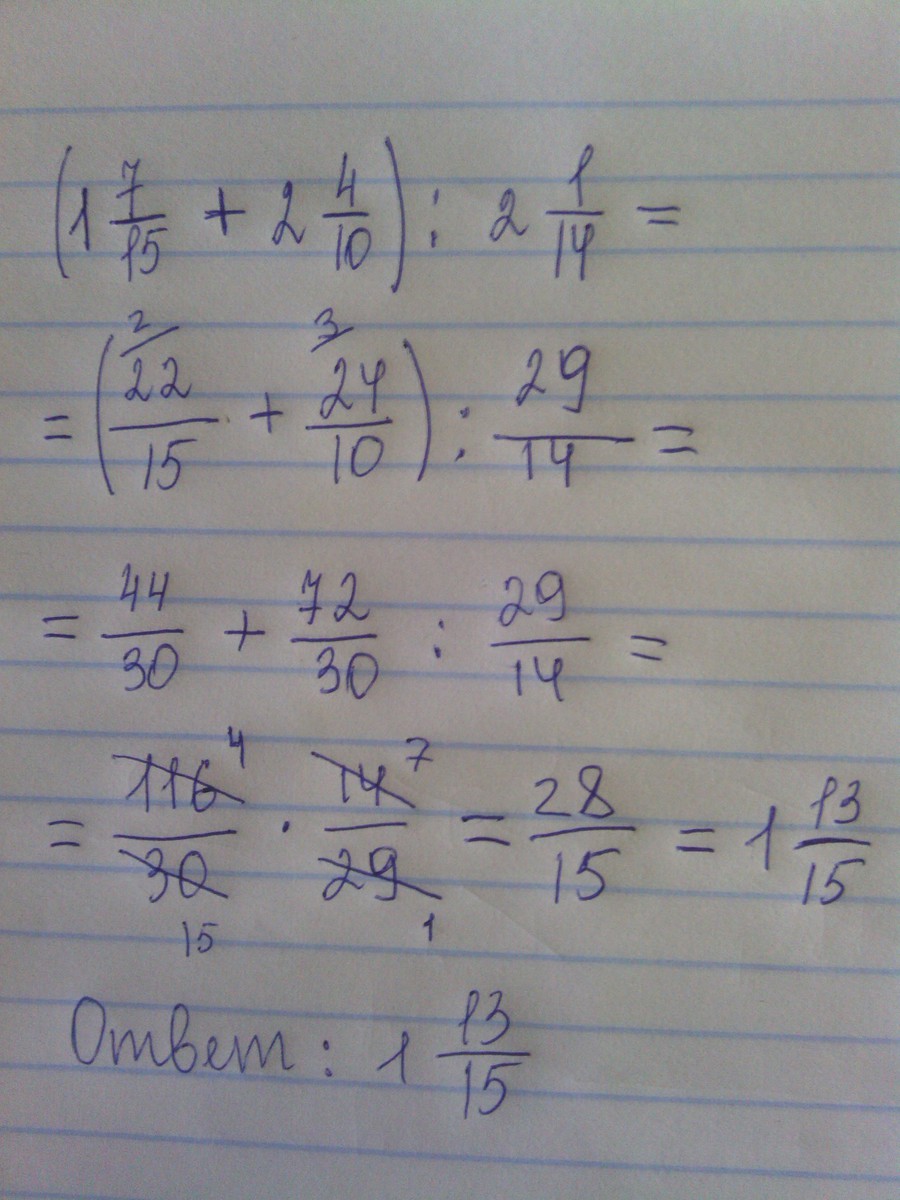 (1 7/15 + 2 4/10) : 2 1/14 =
= (22/15 ² + 24/10 ³) : 29/14 =
= 44/30 + 72/30 : 29/14 =
= 116/30 4 15 · 14/29 7 1 = 28/15 = 1 13/15
Ответ: 1 13/15